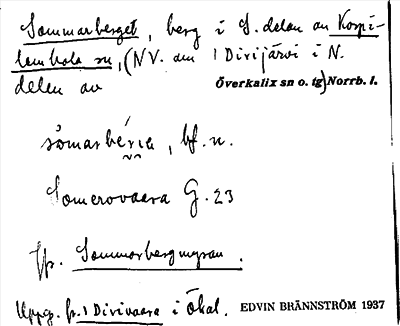 Sommarberget, berg i S. delen av Korpi-
lombolo sn, (NV. om 1 Dirijärvi i N.
delen av Överkalix sn o. tg) Norrb. l.
såmarbérje, bf. n.
Somerovaara G. 23
Jfr. Sommarbergmyran.
Uppg. fr. 1 Dirivaara i Ökal. EDVIN BRÄNNSTRÖM 1937